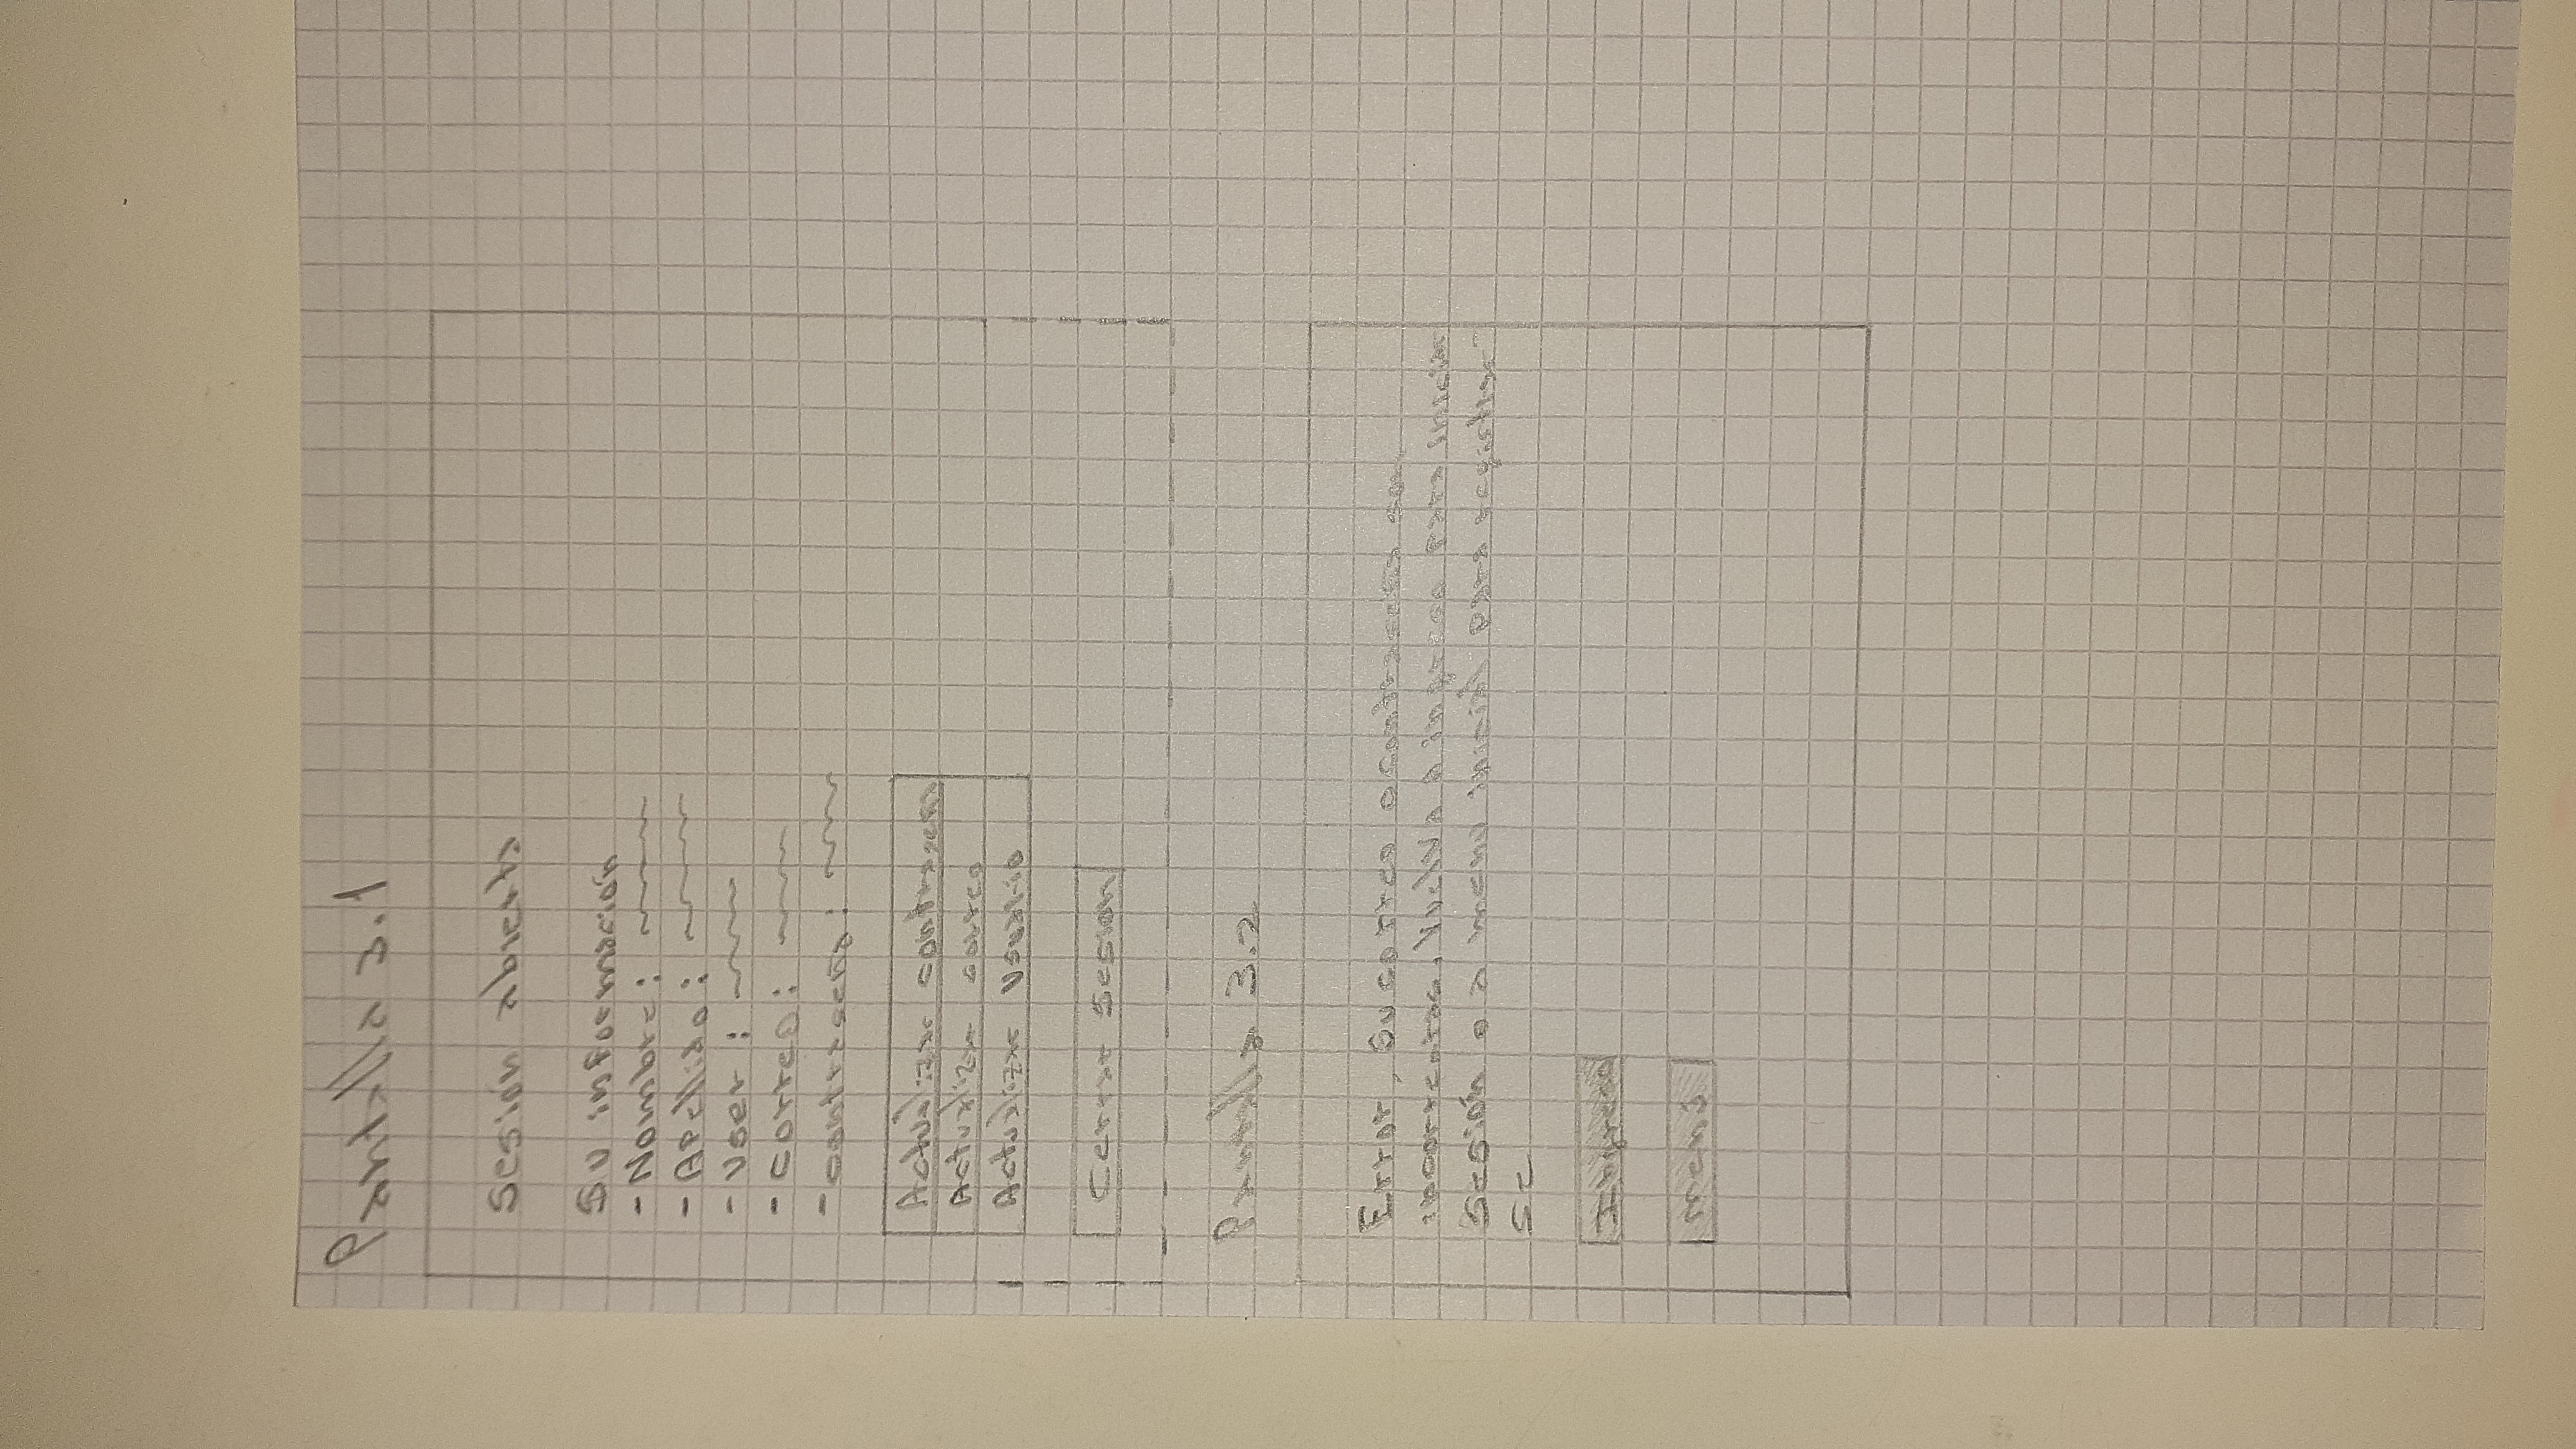 Pantalla 3.1
Sesión abierta
Su información
- Nombre:
- Apellido:
- User:
- Correo:
- contraseña:
Actualizar contraseña
Actualizar correo
Actualizar Usuario
Cerrar Sesion
Pantalla 3.2
Error, Su correo o contraseña son
incorrectas. Vuelva a ingreso para iniciar
Sesión o a menu inicial para registrar-
se
Ingreso
Menú